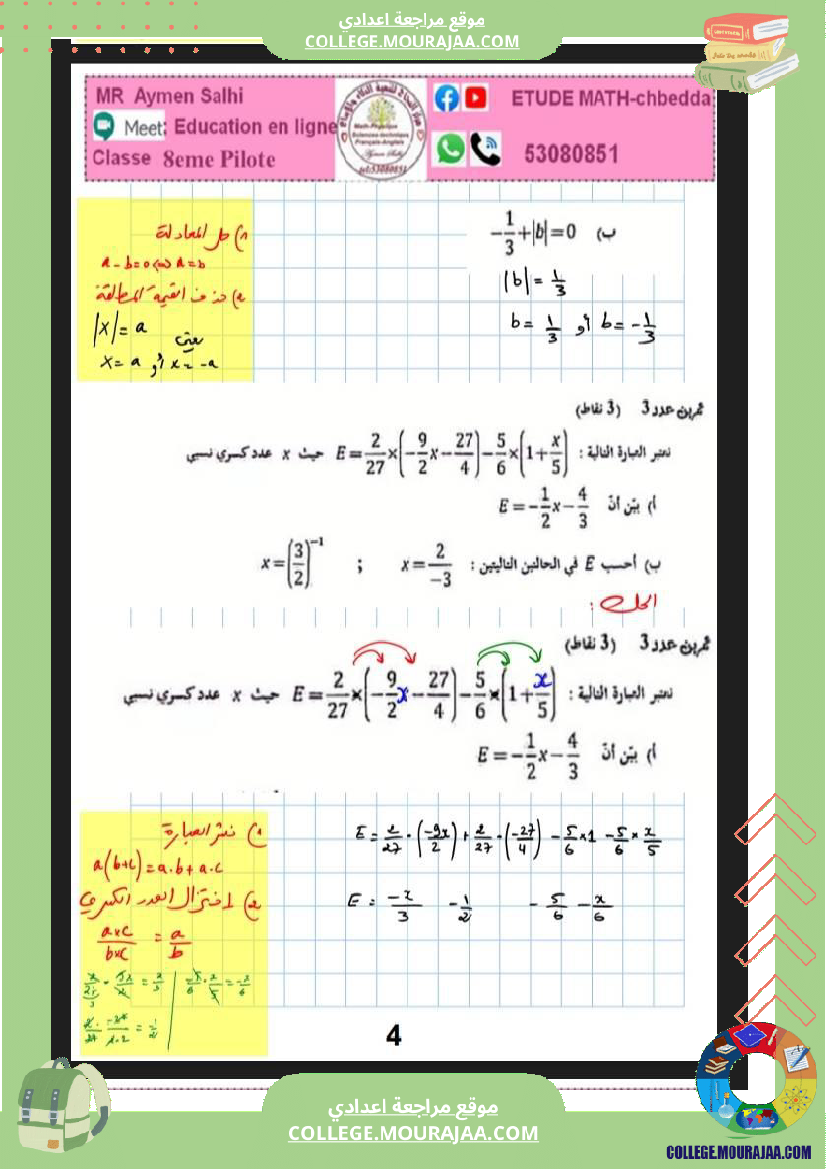 موقع مراجعة اعدادي
COLLEGE.MOURAJAA.COM
MR Aymen Salhi
Meet: Education en ligne
Classe 8eme Pilote
ETUDE MATH-chbedda
53080851
ب) -1/3+|b|=0
|b| = 1/3
b = 1/3 أو b = -1/3
1) حل المعادلة
a-b=0 ⇔ a=b
2) حذف القيمة المطلقة
|x| = a
يعني
x = a أو x = -a
تمرين عدد 3 (3 نقاط)
نعتبر العبارة التالية : E = 2/27×(-9/2x-27/4)-5/6×(1+x/5) حيث x عدد كسري نسبي
أ) بيّن أنّ E = -1/2x-4/3
ب) أحسب E في الحالتين التاليتين : x = 2/-3 ; x = (3/2)^-1
الحل :
تمرين عدد 3 (3 نقاط)
نعتبر العبارة التالية : E = 2/27×(-9/2x-27/4)-5/6×(1+x/5) حيث x عدد كسري نسبي
أ) بيّن أنّ E = -1/2x-4/3
1) ننشر العبارة
a(b+c) = a.b + a.c
2) اختزال العدد الكسري
a×c/b×c = a/b
E = 2/27 . (-9x/2) + 2/27 . (-27/4) - 5/6 × 1 - 5/6 × x/5
E = -x/3 - 1/2 - 5/6 - x/6
4
موقع مراجعة اعدادي
COLLEGE.MOURAJAA.COM
COLLEGE.MOURAJAA.COM